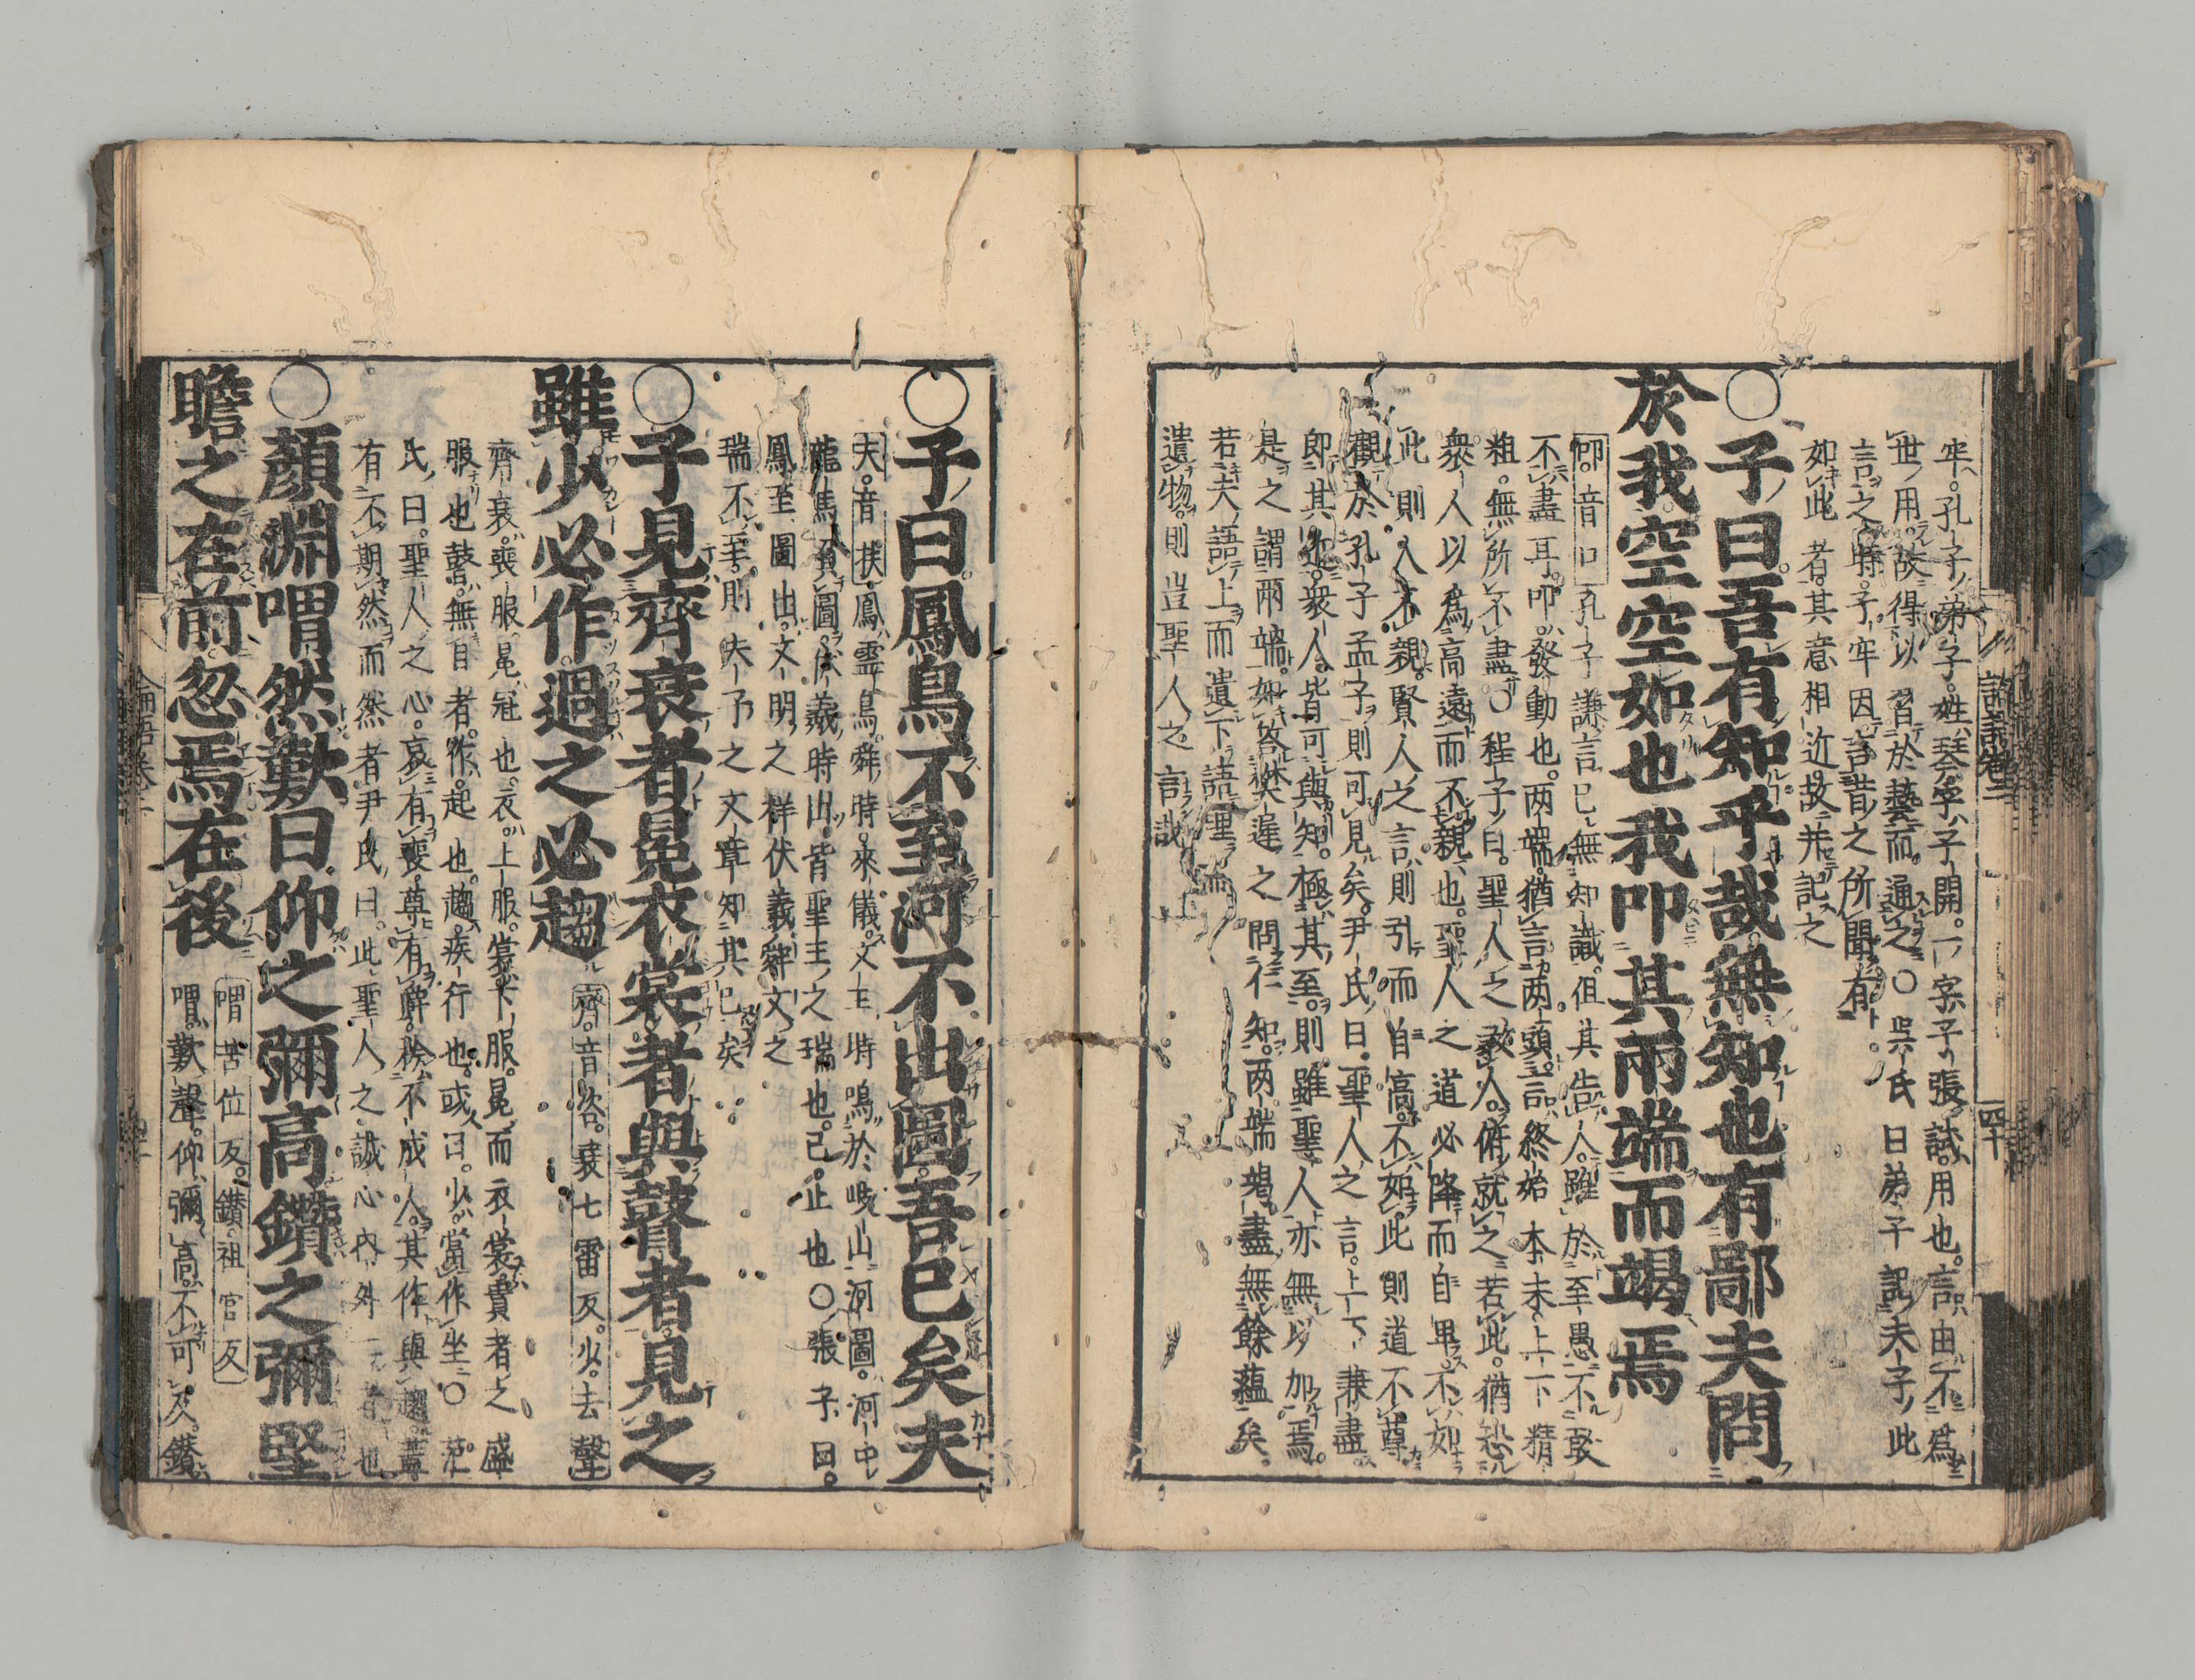 牢。孔子弟子。姓琴。字子開。一字子張。試。用也。言由不爲
世用。故得以習於藝而通之。○吳氏曰弟子記夫子此
言之時。子牢因言昔之所聞有
如此者。其意相近。故并記之
○子曰吾有知乎哉無知也有鄙夫問
於我空空如也我叩其兩端而竭焉
叩。音口 孔子謙言己無知識。但其告人。雖於至愚不敢
不盡耳。叩。發動也。两端。猶言两頭。言終始本末。上下精
粗。無所不盡。○程子曰。聖人之教人。俯就之若此。猶恐
衆人以爲高遠而不親也。聖人之道必降而自卑。不如
此則人不親。賢人之言。則引而自高。不如此則道不尊。
觀於孔子孟子則可見矣。尹氏曰。聖人之言。上下兼盡。
即其近。衆人皆可與知。極其至。則雖聖人亦無以加焉。
是之謂兩端。如答樊遲之問仁知。两端竭盡。無餘蘊矣。
若夫語上而遺下。語理而
遺物。則豈聖人之言哉
論語卷三
四十
○子曰鳳鳥不至河不出圖吾已矣夫
夫。音扶 鳳。靈鳥。舜時來儀。文王時鳴於岐山。河圖。河中
龍馬負圖。伏羲時出。皆聖王之瑞也。已。止也。○張子曰。
鳳至圖出。文明之祥。伏羲舜文之
瑞不至。則夫子之文章知其已矣
○子見齊衰者冕衣裳者與瞽者見之
雖少必作過之必趨 齊。音咨。衰七雷反。少。去聲
齊衰。喪服。冕。冠也。衣。上服。裳。下服。冕而衣裳。貴者之盛
服也。瞽。無目者。作。起也。趨。疾行也。或曰。少。當作坐。○范
氏曰。聖人之心。哀有喪。尊有爵。矜不成人。其作與趨。蓋
有不期然而然者。尹氏曰。此聖人之誠心內外一者也
○顏淵喟然歎曰仰之彌高鑽之彌堅
瞻之在前忽焉在後 喟苦位反。鑽。祖官反
喟。歎聲。仰彌高。不可及。鑽
論語卷三